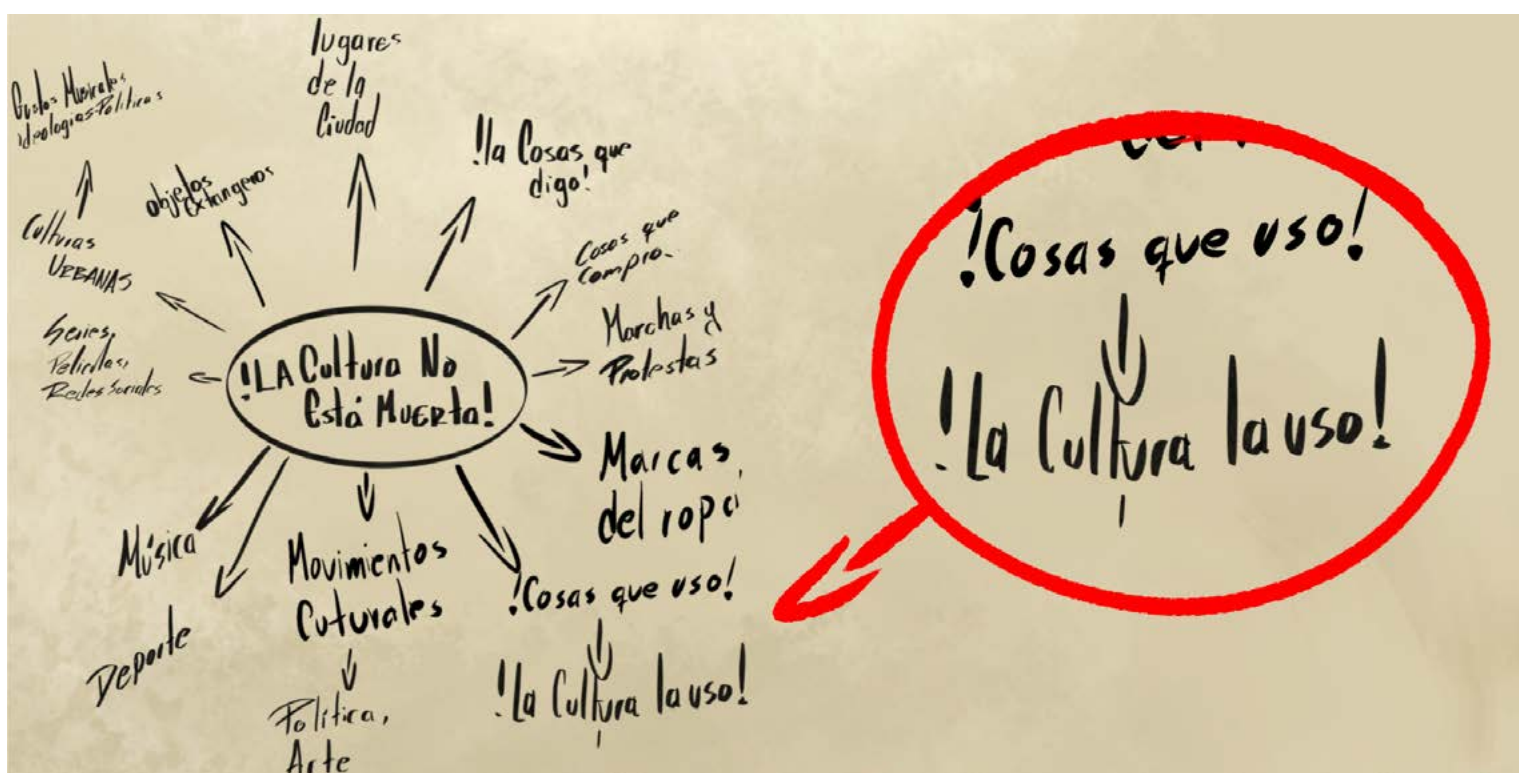 Gustos Musicales,
ideologias Politicas
Culturas
URBANAS
objetos
extrangeros
lugares
de la
Ciudad
!la Cosas que
digo!
Cosas que
Compro.
Marchas y
Protestas
Series,
Peliculas,
Redes Sociales
!LA Cultura No
Está MUERta!
Marcas,
del ropa
Música
Deporte
Movimientos
Cuturales
Política,
Arte
!Cosas que uso!
!La Cultura la uso!
!Cosas que uso!
!La Cultura la uso!